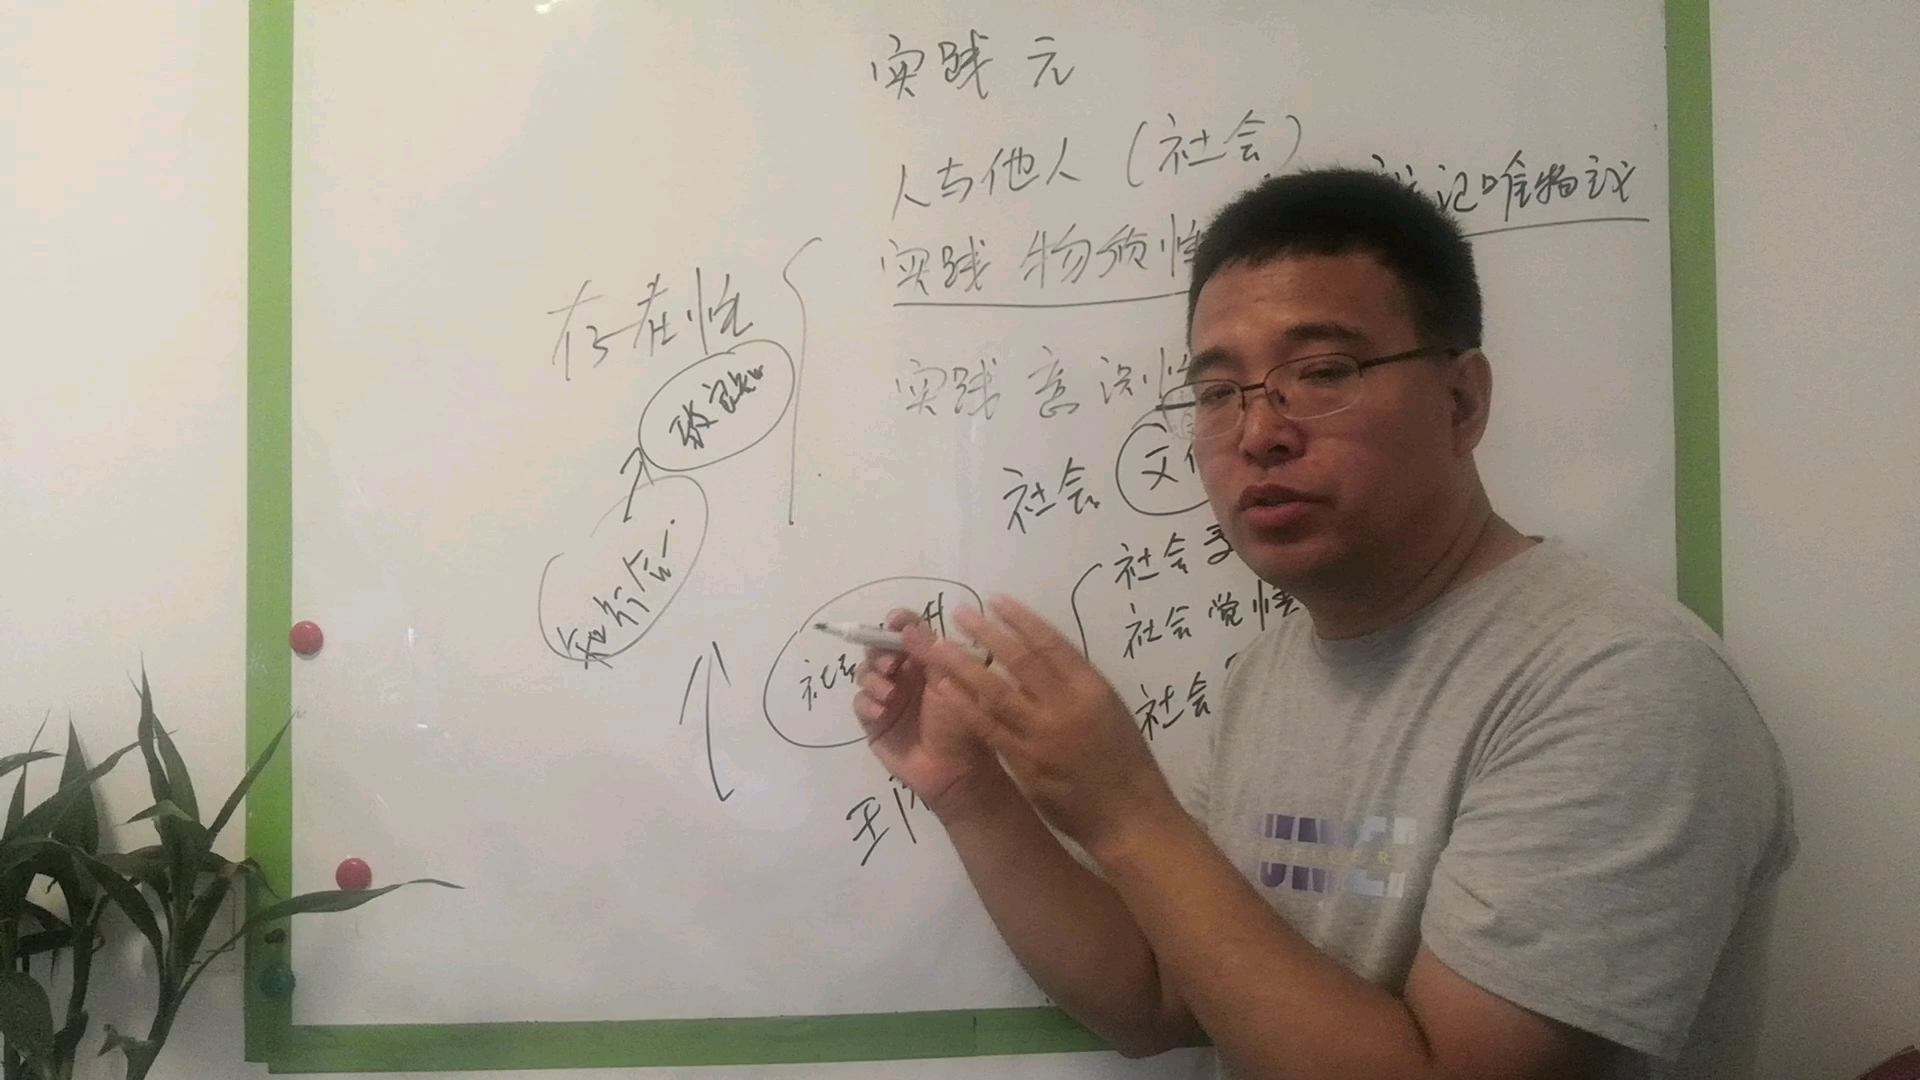 实践元
人与他人(社会)
记唯物议
实践 物质性
存在性
实践 意识性
致良知
社会 文
知行合一
社会
社会觉悟
社会
社会
王阳